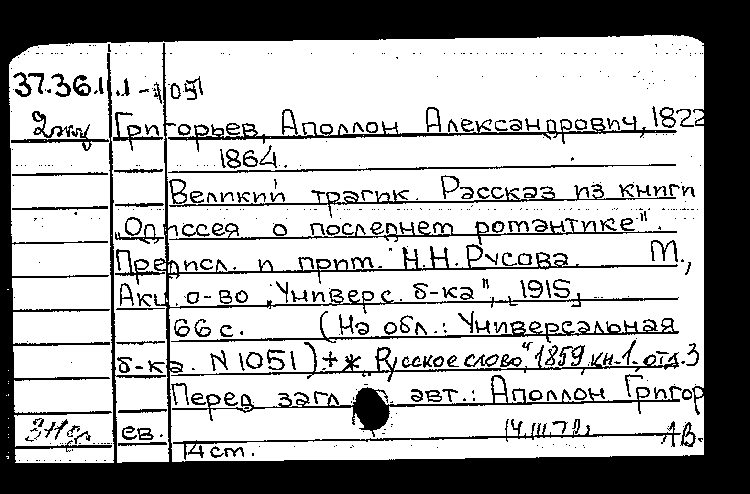 37.36.1.1-1051
2экз
Григорьев, Аполлон Александрович, 1822
1864.
Великий трагик. Рассказ из книги
„Одиссея о последнем романтике".
Предисл. и прим. Н.Н.Русова. М.,
Акц. о-во „Универс. б-ка", 1915,
66 с. (На обл.: Универсальная
б-ка. N 1051) + ж „Русское слово", 1859, кн.1, отд.3
Перед загл. авт.: Аполлон Григор
ев. 14.III.72г
14 см. АВ.